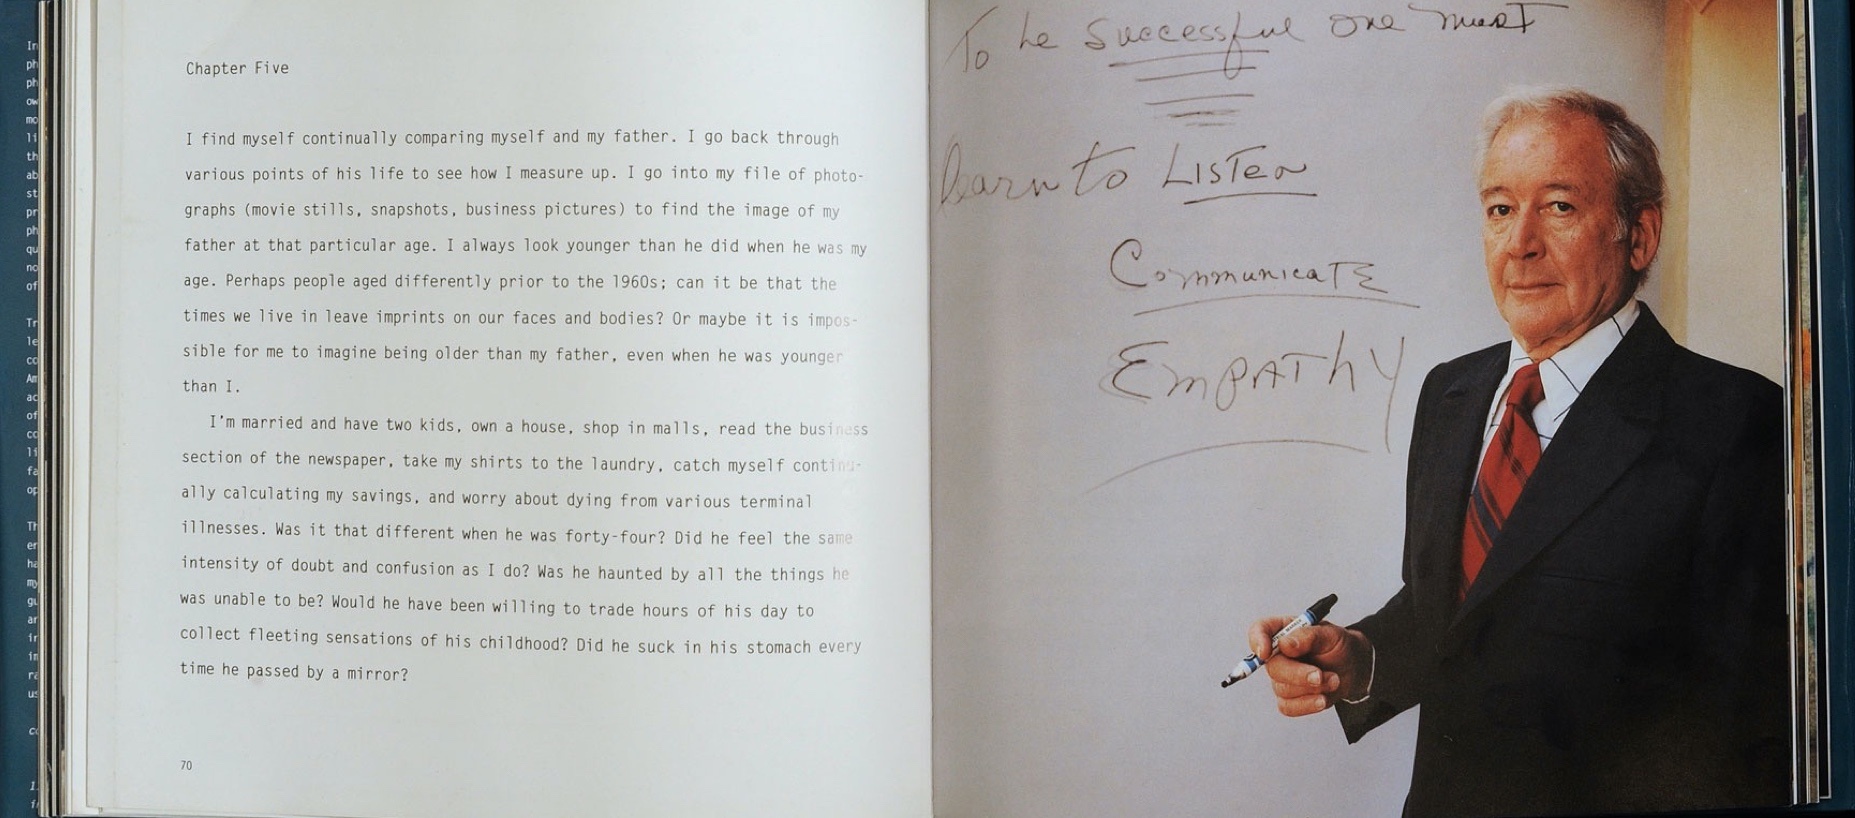 Chapter Five
I find myself continually comparing myself and my father. I go back through
various points of his life to see how I measure up. I go into my file of photo-
graphs (movie stills, snapshots, business pictures) to find the image of my
father at that particular age. I always look younger than he did when he was my
age. Perhaps people aged differently prior to the 1960s; can it be that the
times we live in leave imprints on our faces and bodies? Or maybe it is impos-
sible for me to imagine being older than my father, even when he was younger
than I.
I'm married and have two kids, own a house, shop in malls, read the business
section of the newspaper, take my shirts to the laundry, catch myself continu-
ally calculating my savings, and worry about dying from various terminal
illnesses. Was it that different when he was forty-four? Did he feel the same
intensity of doubt and confusion as I do? Was he haunted by all the things he
was unable to be? Would he have been willing to trade hours of his day to
collect fleeting sensations of his childhood? Did he suck in his stomach every
time he passed by a mirror?
70
To be Successful one must
learn to LISTEN
Communicate
EMPAThY